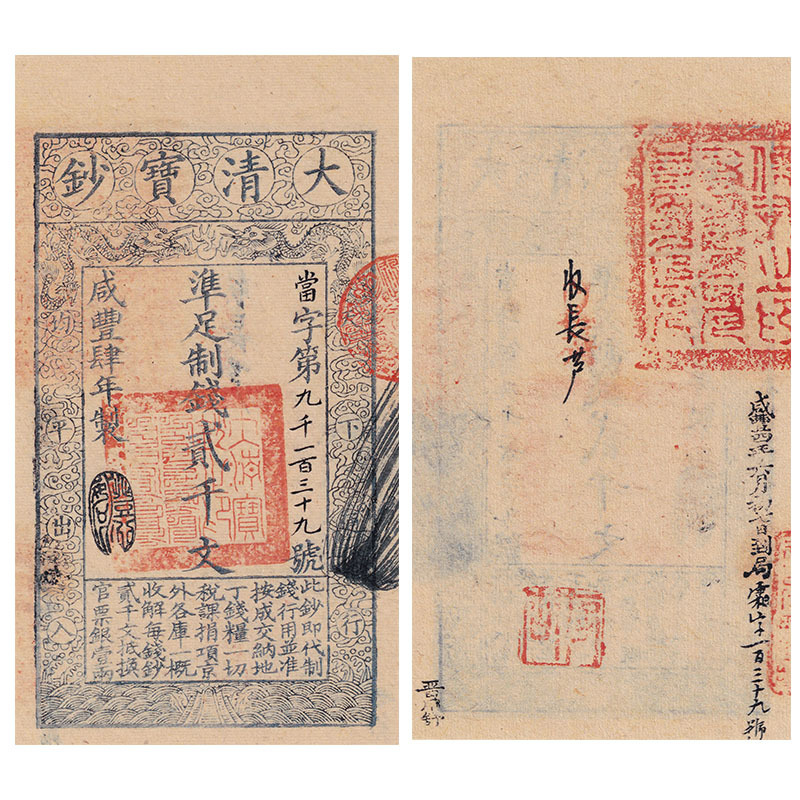 大清寶鈔
當字第九千一百三十九號
準足制錢貳千文
咸豐肆年製
下
行
均平出入
此鈔即代制
錢行用並准
按成交納地
丁錢糧一切
稅課捐項京
外各庫一概
收解每錢鈔
貳千文抵換
官票銀壹兩
收長芦
日到局
一百三十九號